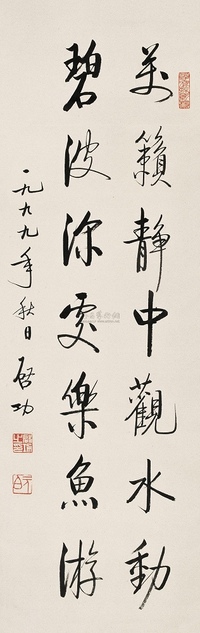 萬籟静中觀水動
碧波深雯樂魚游
一九九九年秋日 启功